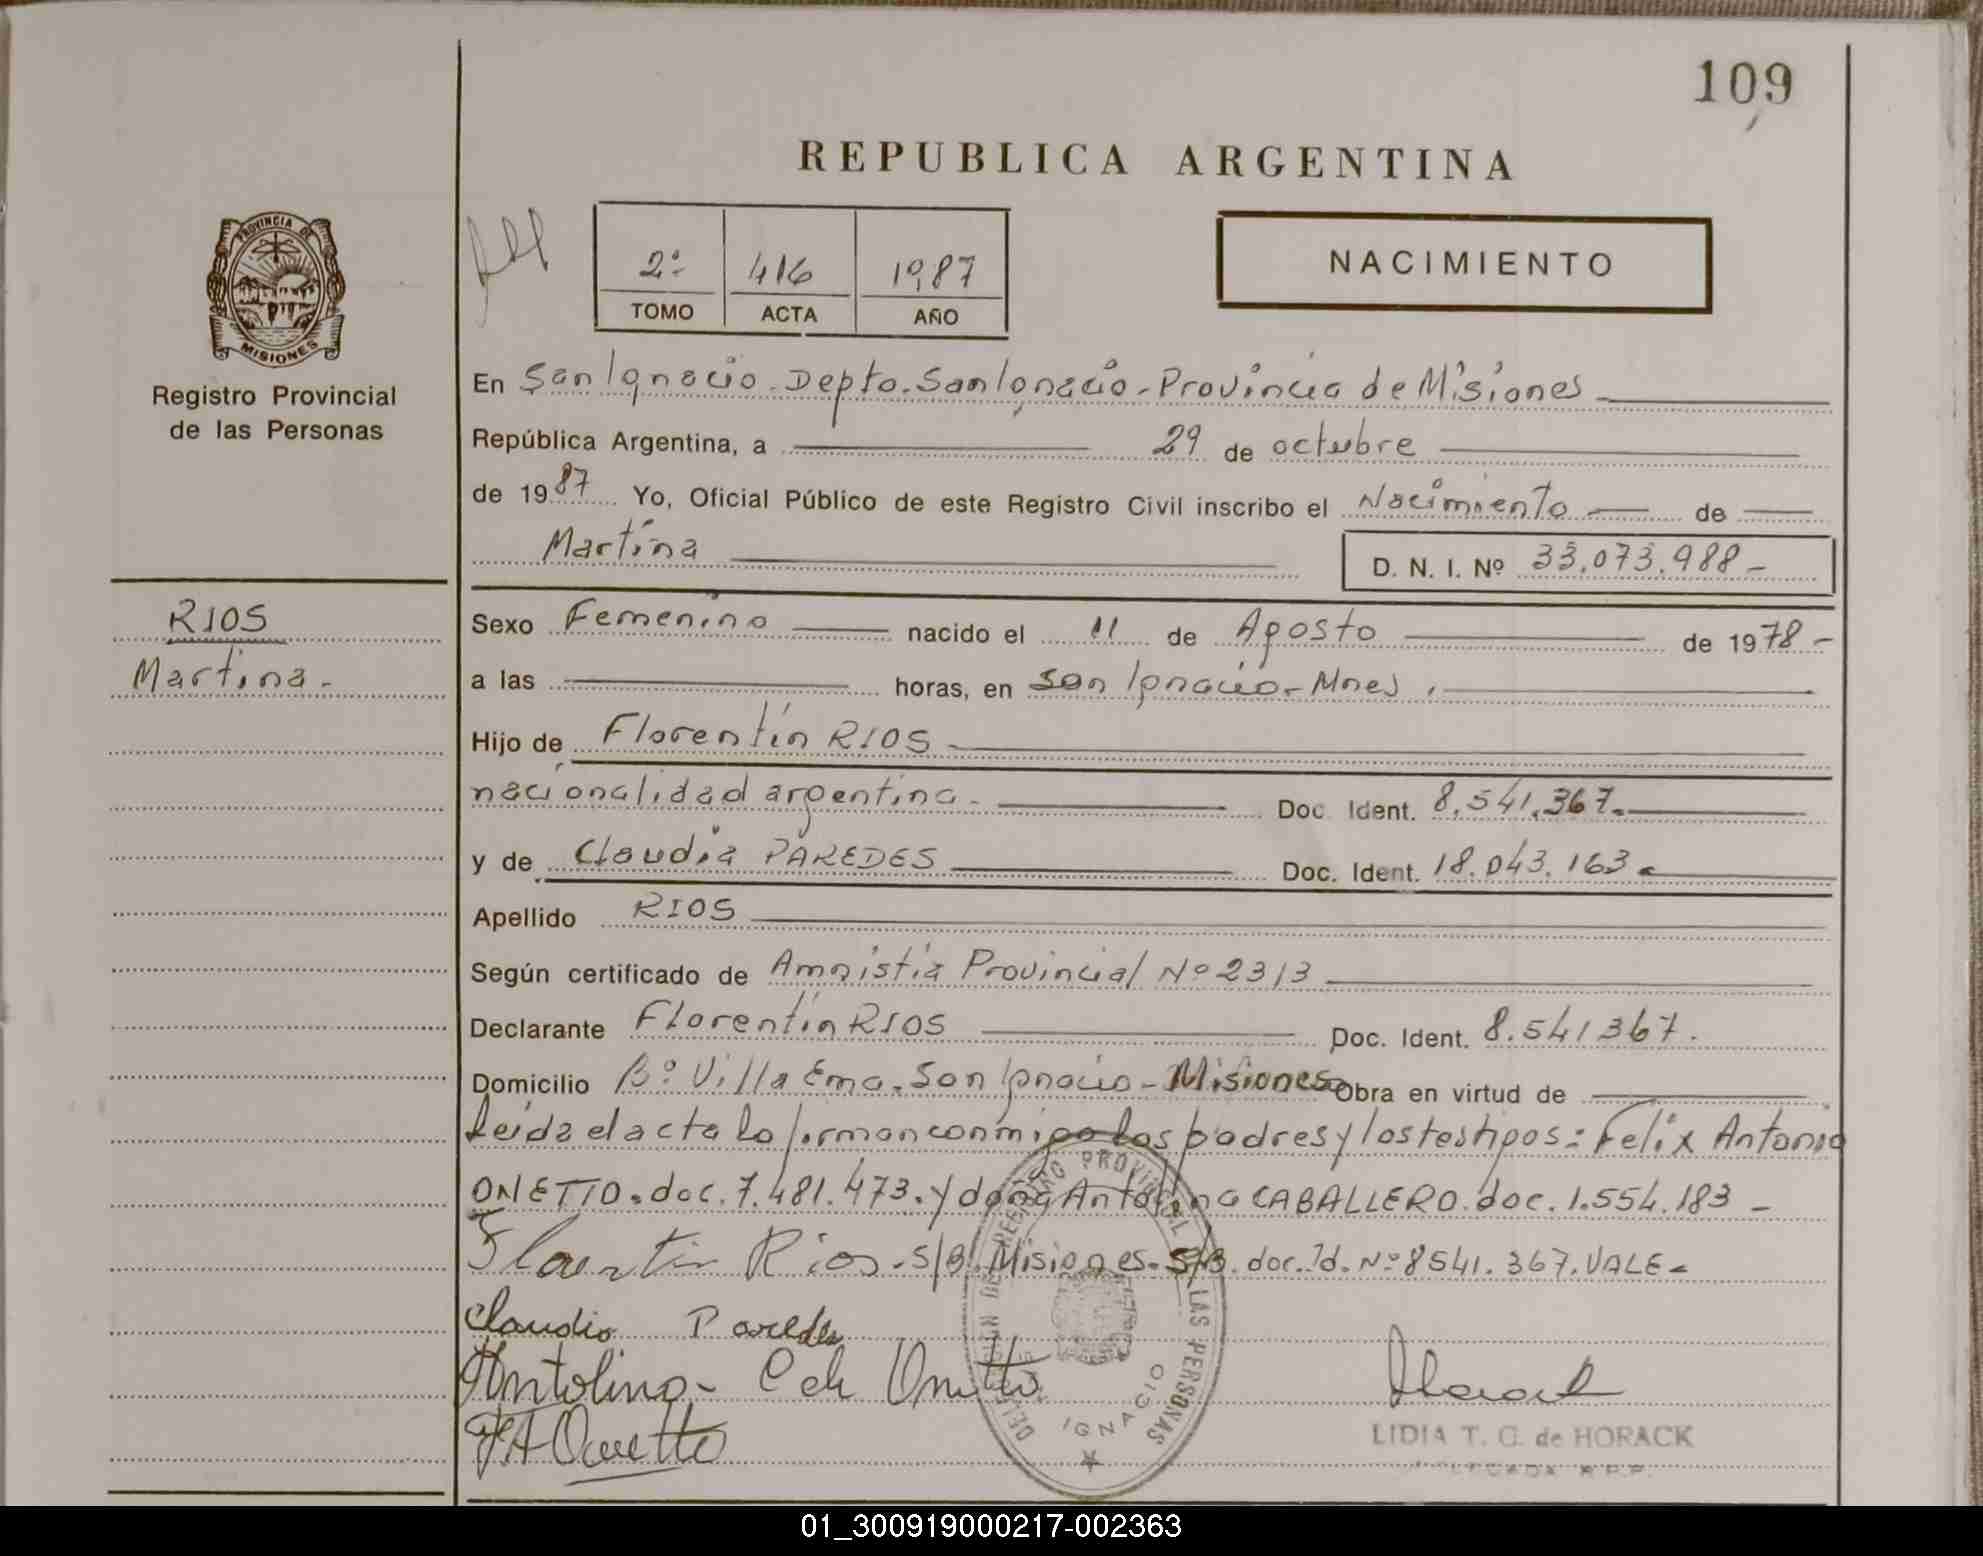 109
REPUBLICA ARGENTINA
PROVINCIA DE
MISIONES
Registro Provincial
de las Personas
2º 416 1987
TOMO ACTA AÑO
NACIMIENTO
En San Ignacio. Depto. San Ignacio - Provincia de Misiones
República Argentina, a 29 de octubre
de 1987 Yo, Oficial Público de este Registro Civil inscribo el Nacimiento de
Martina D. N. I. Nº 33.073.988 -
RIOS
Martina -
Sexo Femenino nacido el 11 de Agosto de 1978 -
a las horas, en San Ignacio - Mnes.
Hijo de Florentín RIOS
nacionalidad argentina. Doc. Ident. 8.541.367.
y de Claudia PAREDES Doc. Ident. 18.043.163
Apellido RIOS
Según certificado de Amnistía Provincial Nº 2313
Declarante Florentín RIOS Doc. Ident. 8.541367.
Domicilio Bº Villa Ema. San Ignacio - Misiones Obra en virtud de
Leída el acta la firman conmigo los padres y los testigos: Felix Antonio
ONETTO. doc. 7.481.473. y doña Antolina CABALLERO. doc. 1.554.183 -
Florentin Rios - S/B. Misiones - S/B. doc. Id. Nº 8541.367. VALE -
Claudia Paredes
Antolina - C de Onetto
F A Onetto
DELEGACION DEL REGISTRO PROVINCIAL DE LAS PERSONAS
IGNACIO
LIDIA T. G. de HORACK
DELEGADA R.P.P.
01_300919000217-002363